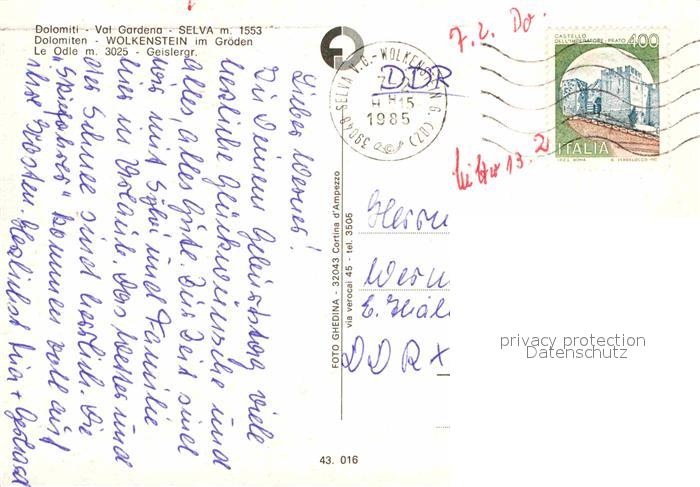 Dolomiti - Val Gardena - SELVA m. 1553
Dolomiten - WOLKENSTEIN im Gröden
Le Odle m. 3025 - Geislergr.
Lieber Werner!
Zu Deinem Geburtstag viele
herzliche Glückwünsche und
alles, alles Gute. Zur Zeit sind
wir mit Sylvi und Familie
hier in Urlaub. Das Wetter und
der Schnee sind herrlich. Die
kommen voll auf
ihre Kosten. Herzlichst +
FOTO GHEDINA - 32043 Cortina d'Ampezzo
via verocai 45 - tel. 3505
43. 016
39048 SELVA V.G. - WOLKENSTEIN G. (BZ)
H 15
1985
DDR
7. 2. Do.
13. 2
CASTELLO
DELL'IMPERATORE - PRATO
400
ITALIA
I.P.Z.S. ROMA
Herrn
Wern
DDR X
privacy protection
Datenschutz